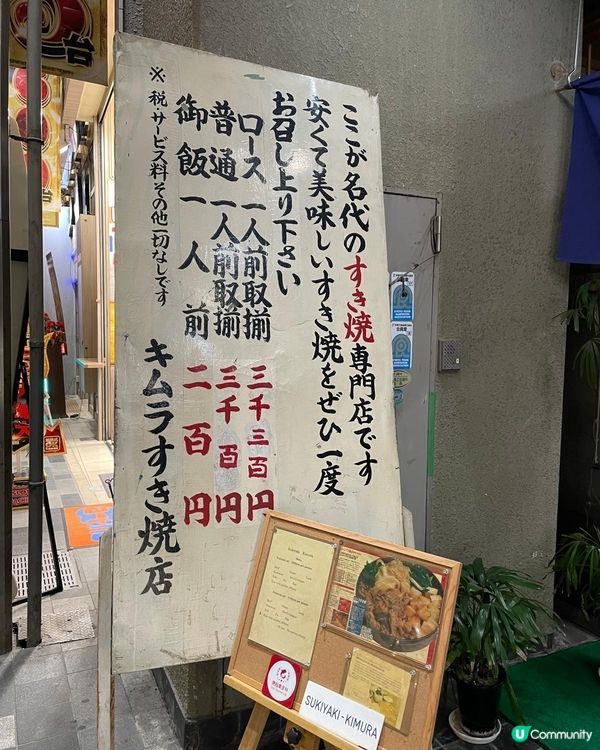 ここが名代のすき焼専門店です
安くて美味しいすき焼をぜひ一度
お召し上り下さい
ロース 一人前取揃 三千三百円
普通 一人前取揃 三千百円
御飯 一人前 二百円
※税・サービス料その他一切なしです
キムラすき焼店
台
Sukiyaki Kimura
SUKIYAKI-KIMURA
U Community